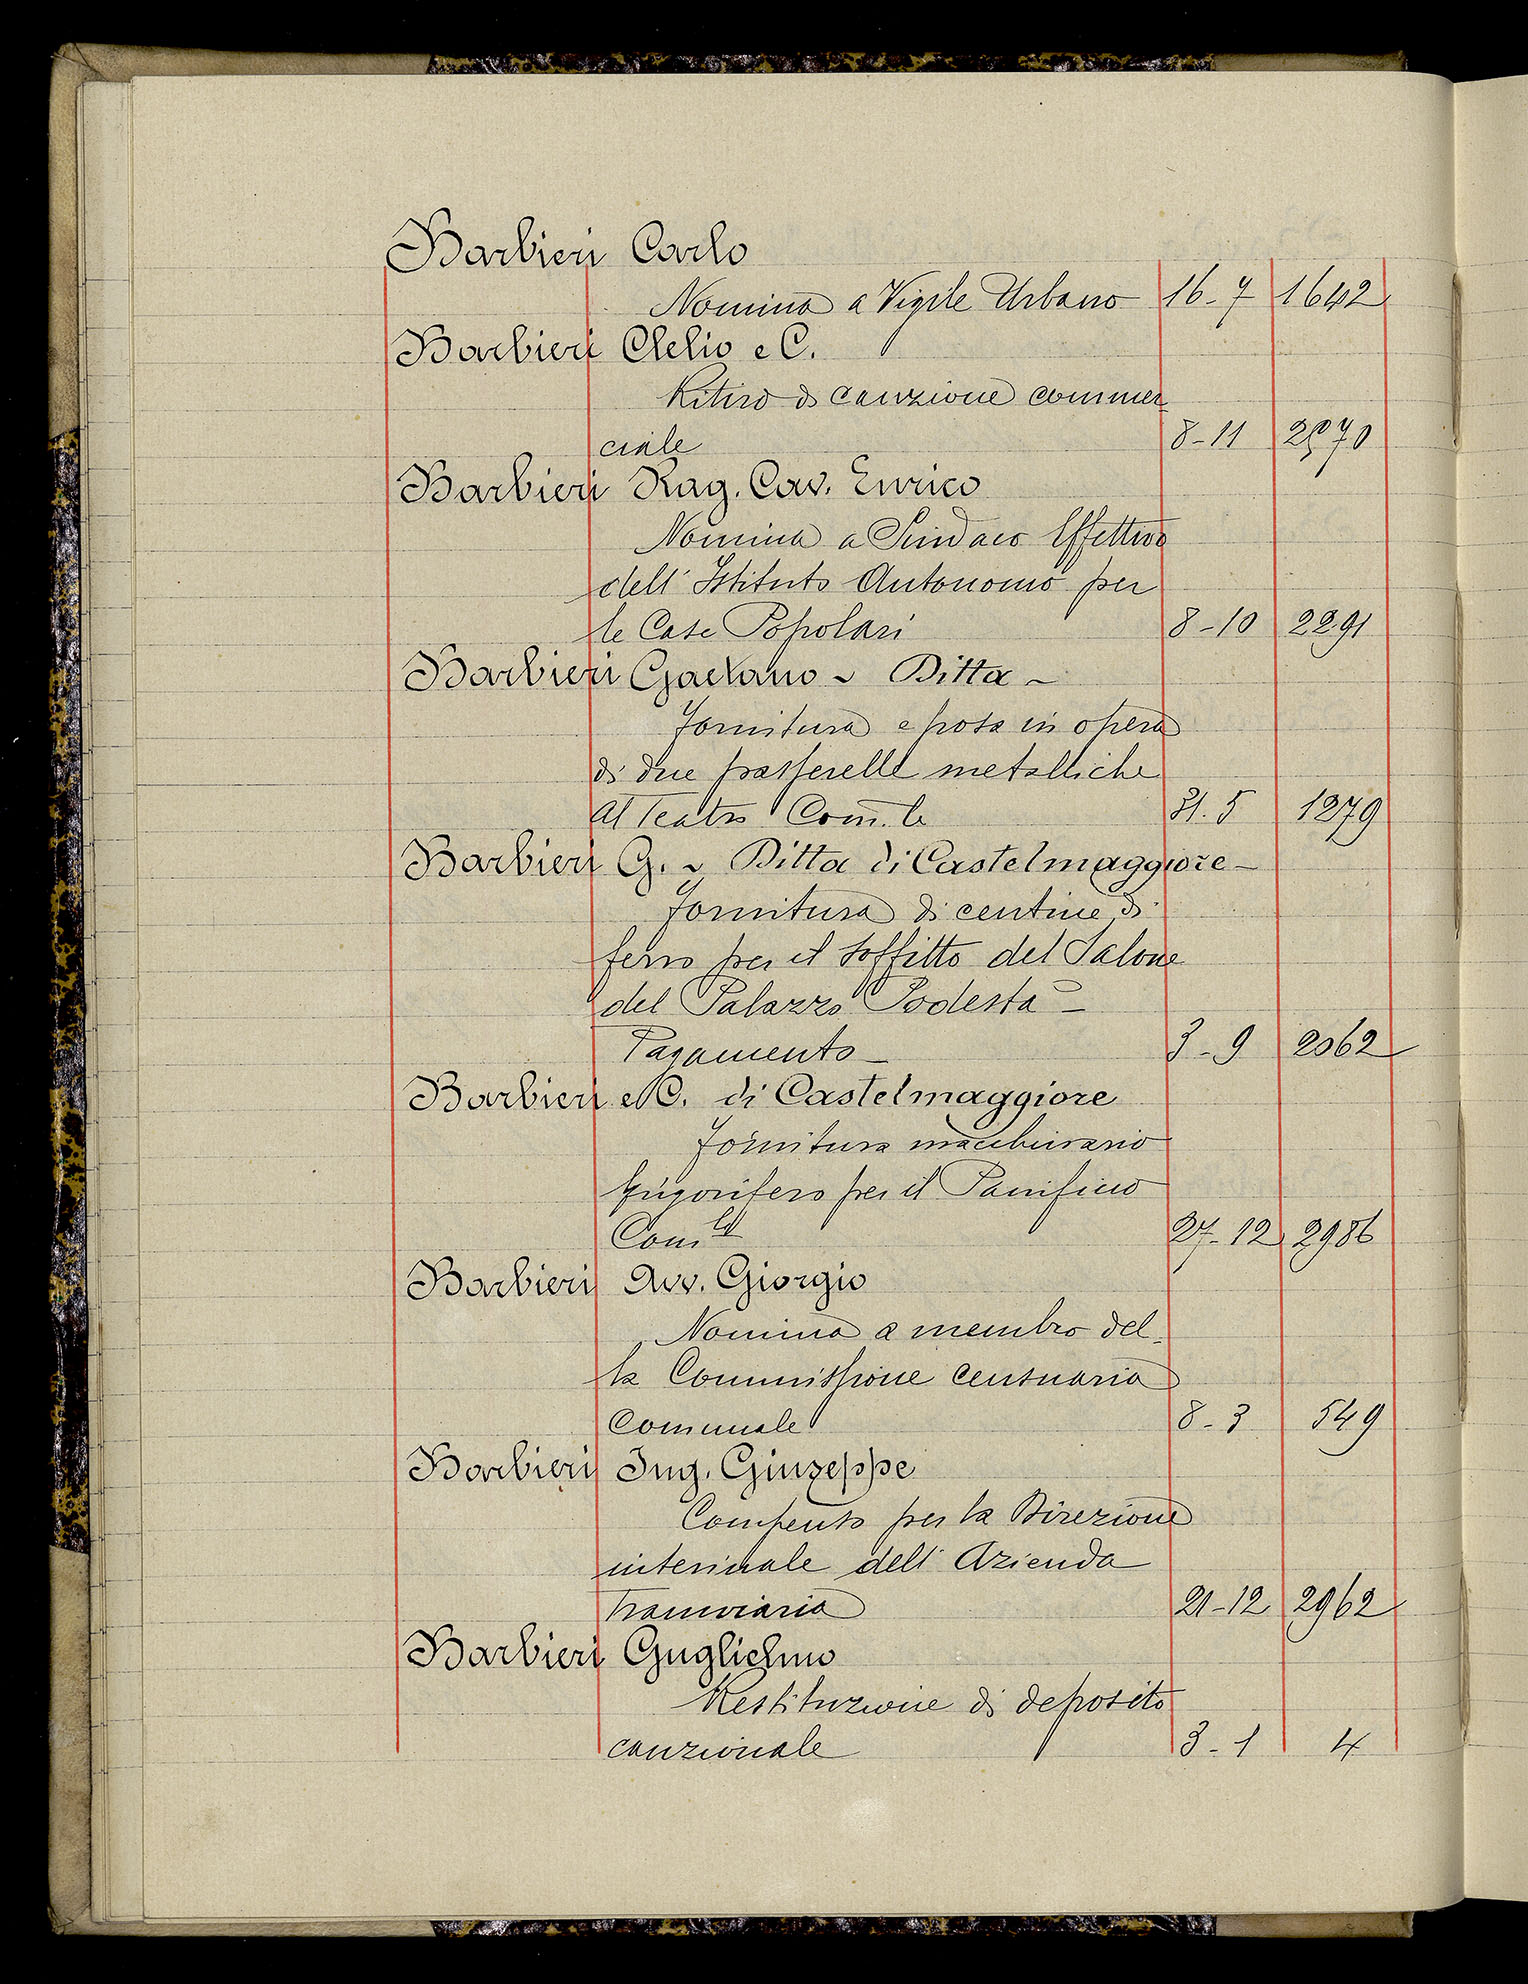 Barbieri Carlo
Nomina a Vigile Urbano 16-7 1642
Barbieri Clelio e C.
Ritiro di cauzione commer-
ciale 8-11 2570
Barbieri Rag. Cav. Enrico
Nomina a Sindaco Effettivo
dell'Istituto Autonomo per
le Case Popolari 8-10 2291
Barbieri Gaetano - Ditta -
fornitura e posa in opera
di due passerelle metalliche
al Teatro Com.le 31.5 1279
Barbieri G. - Ditta di Castelmaggiore -
fornitura di centine di
ferro per il soffitto del Salone
del Palazzo Podestà -
Pagamento - 3-9 2062
Barbieri e C. di Castelmaggiore
fornitura macchinario
frigorifero per il Panificio
Com.le 27-12 2986
Barbieri Avv. Giorgio
Nomina a membro del-
la Commissione censuaria
Comunale 8-3 549
Barbieri Ing. Giuseppe
Compenso per la Direzione
interinale dell'Azienda
Tramviaria 21-12 2962
Barbieri Guglielmo
Restituzione di deposito
cauzionale 3-1 4